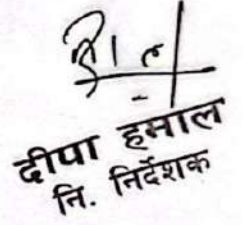 दीपा हमाल
नि. निर्देशक